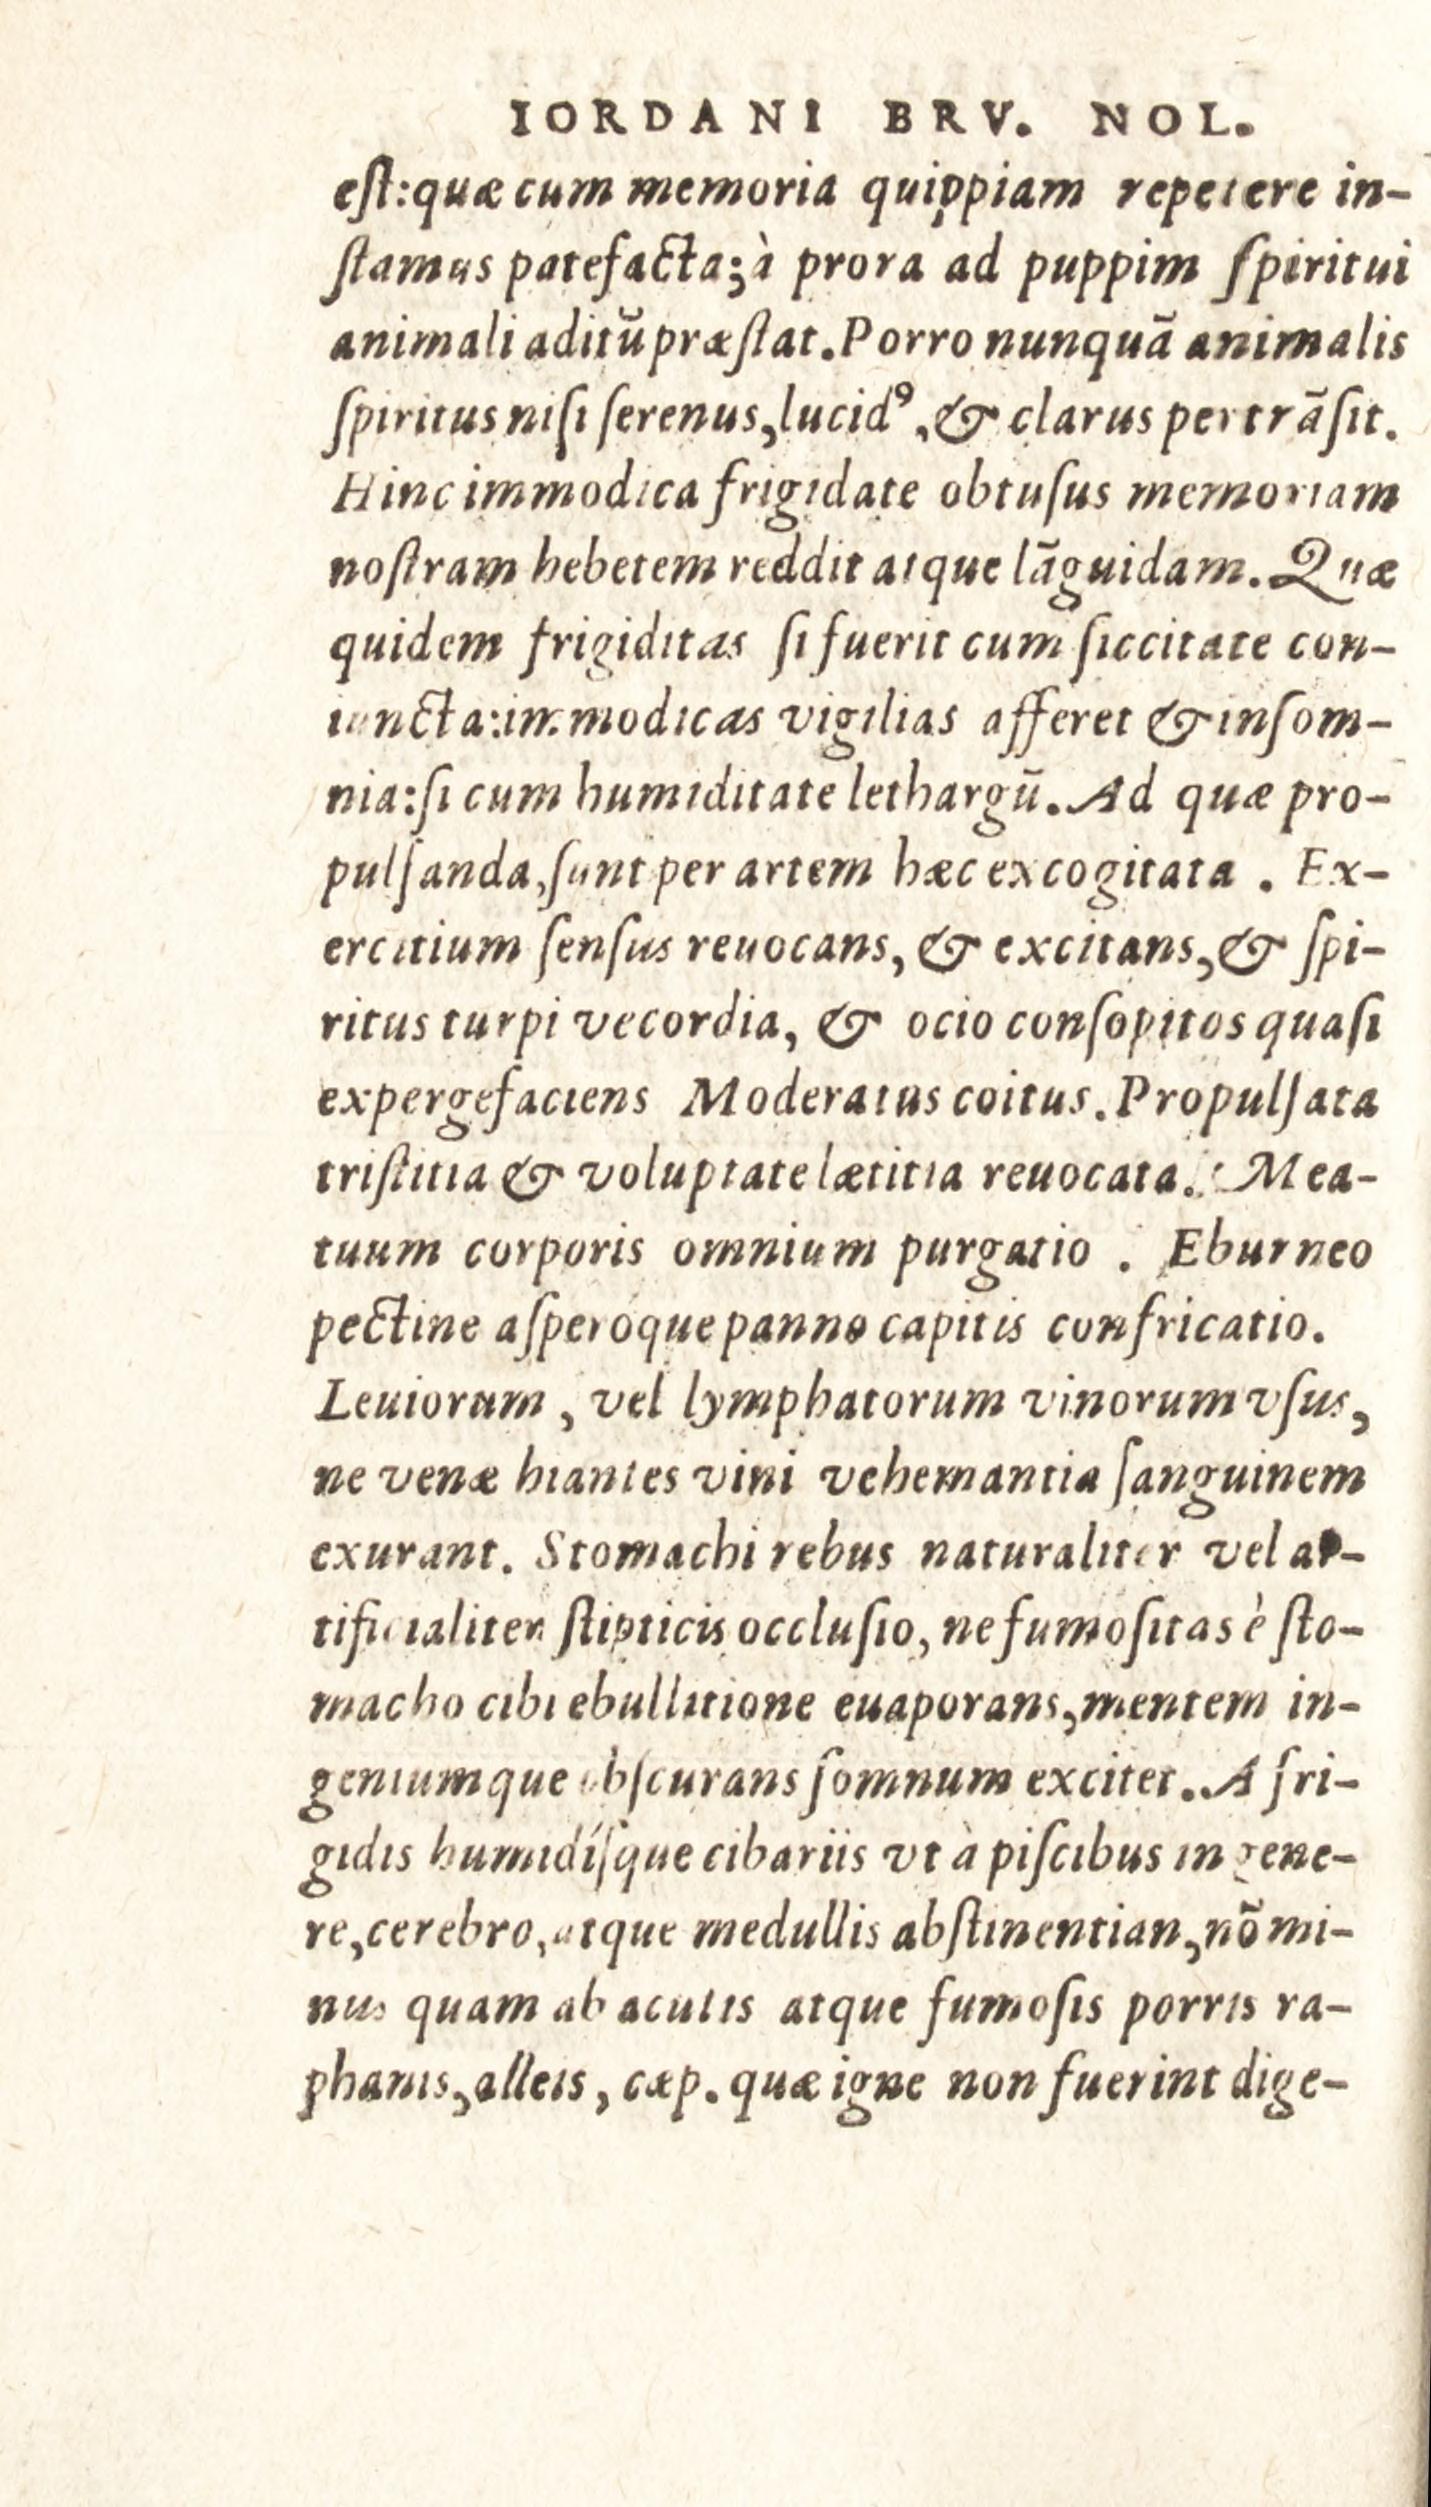 IORDANI BRV. NOL.
eſt:quæ cum memoria quippiam repetere in-
ſtamus patefacta;à prora ad puppim ſpiritui
animali aditū præſtat.Porro nunquā animalis
ſpiritus niſi ſerenus,lucidꝰ,& clarus pertrāſit.
Hinc immodica frigidate obtuſus memoriam
noſtram hebetem reddit atque lāguidam.Quæ
quidem frigiditas ſi fuerit cum ſiccitate con-
iuncta:immodicas vigilias afferet & inſom-
nia:ſi cum humiditate lethargū.Ad quæ pro-
pulſanda,ſunt per artem hæc excogitata . Ex-
ercitium ſenſus reuocans, & excitans,& ſpi-
ritus turpi vecordia, & ocio conſopitos quaſi
expergefaciens Moderatus coitus.Propulſata
triſtitia & voluptate lætitia reuocata. Mea-
tuum corporis omnium purgatio . Eburneo
pectine aſperóque panno capitis confricatio.
Leuiorum , vel lymphatorum vinorum vſus,
ne venæ hiantes vini vehemantia ſanguinem
exurant. Stomachi rebus naturaliter vel ar-
tificialiter ſtipticis occluſio, ne fumoſitas è ſto-
macho cibi ebullitione euaporans,mentem in-
geniumque obſcurans ſomnum excitet.A fri-
gidis humidíſque cibariis vt à piſcibus in gene-
re,cerebro,atque medullis abſtinentian,nō mi-
nus quam ab acutis atque fumoſis porris ra-
phanis,alleis, cæp. quæ igne non fuerint dige-